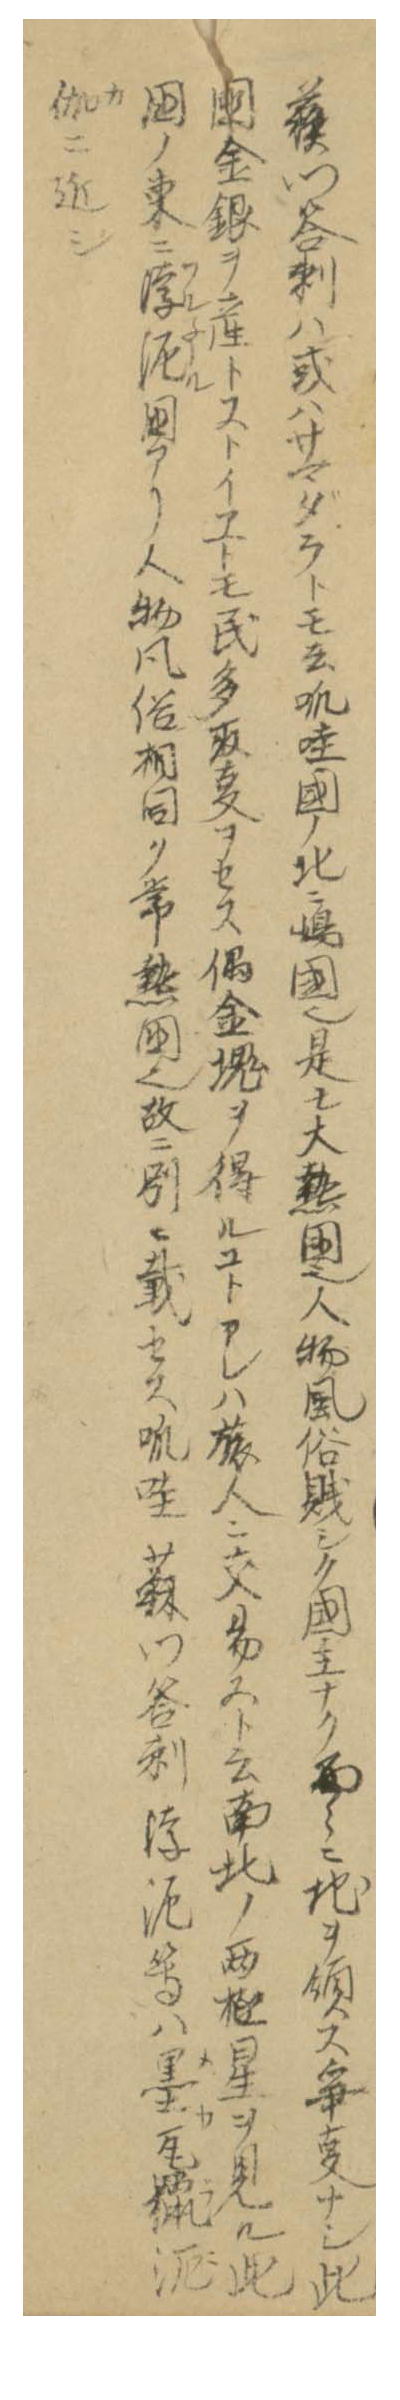 蘓門答剌ハ或ハサマダラトモ云爪哇國ノ北ニ嶋國也是モ大熱國也人物風俗賎シク國主ナク面〻ニ地ヲ領ス爭叓ナシ此
國金銀ヲ産トストイヱトモ民多取叓ヲセス偶金塊ヲ得ルコトアレハ旅人ニ交易スト云南北ノ两極星ヲ見ル此
国ノ東ニ浡泥國アリ人物凨俗相同ク常熱国也故ニ別ニ載セス爪哇蘇門答剌浡泥等ハ墨瓦臘泥
伽ニ近シ